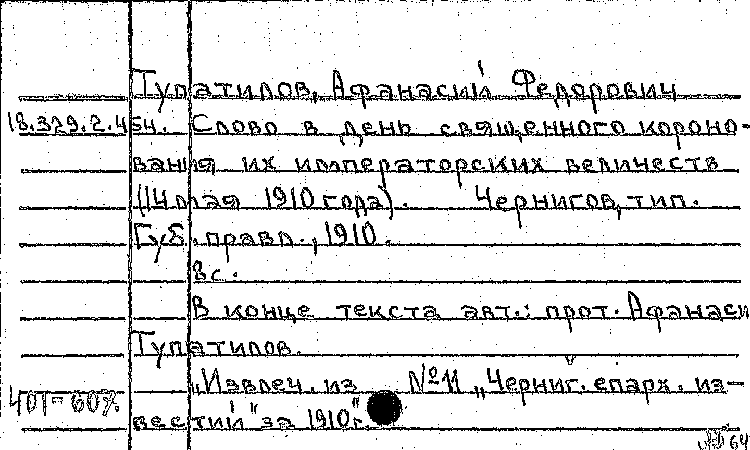 Тупатилов, Афанасий Федорович
18.329.2.454. Слово в день священного короно-
вания их императорских величеств
(14 мая 1910 года). Чернигов, тип.
Губ. правл., 1910.
8с.
В конце текста авт.: прот. Афанаси
Тупатилов.
„Извлеч. из №11 „Черниг. епарх. из-
вестий" за 1910"г.
401-60%
64